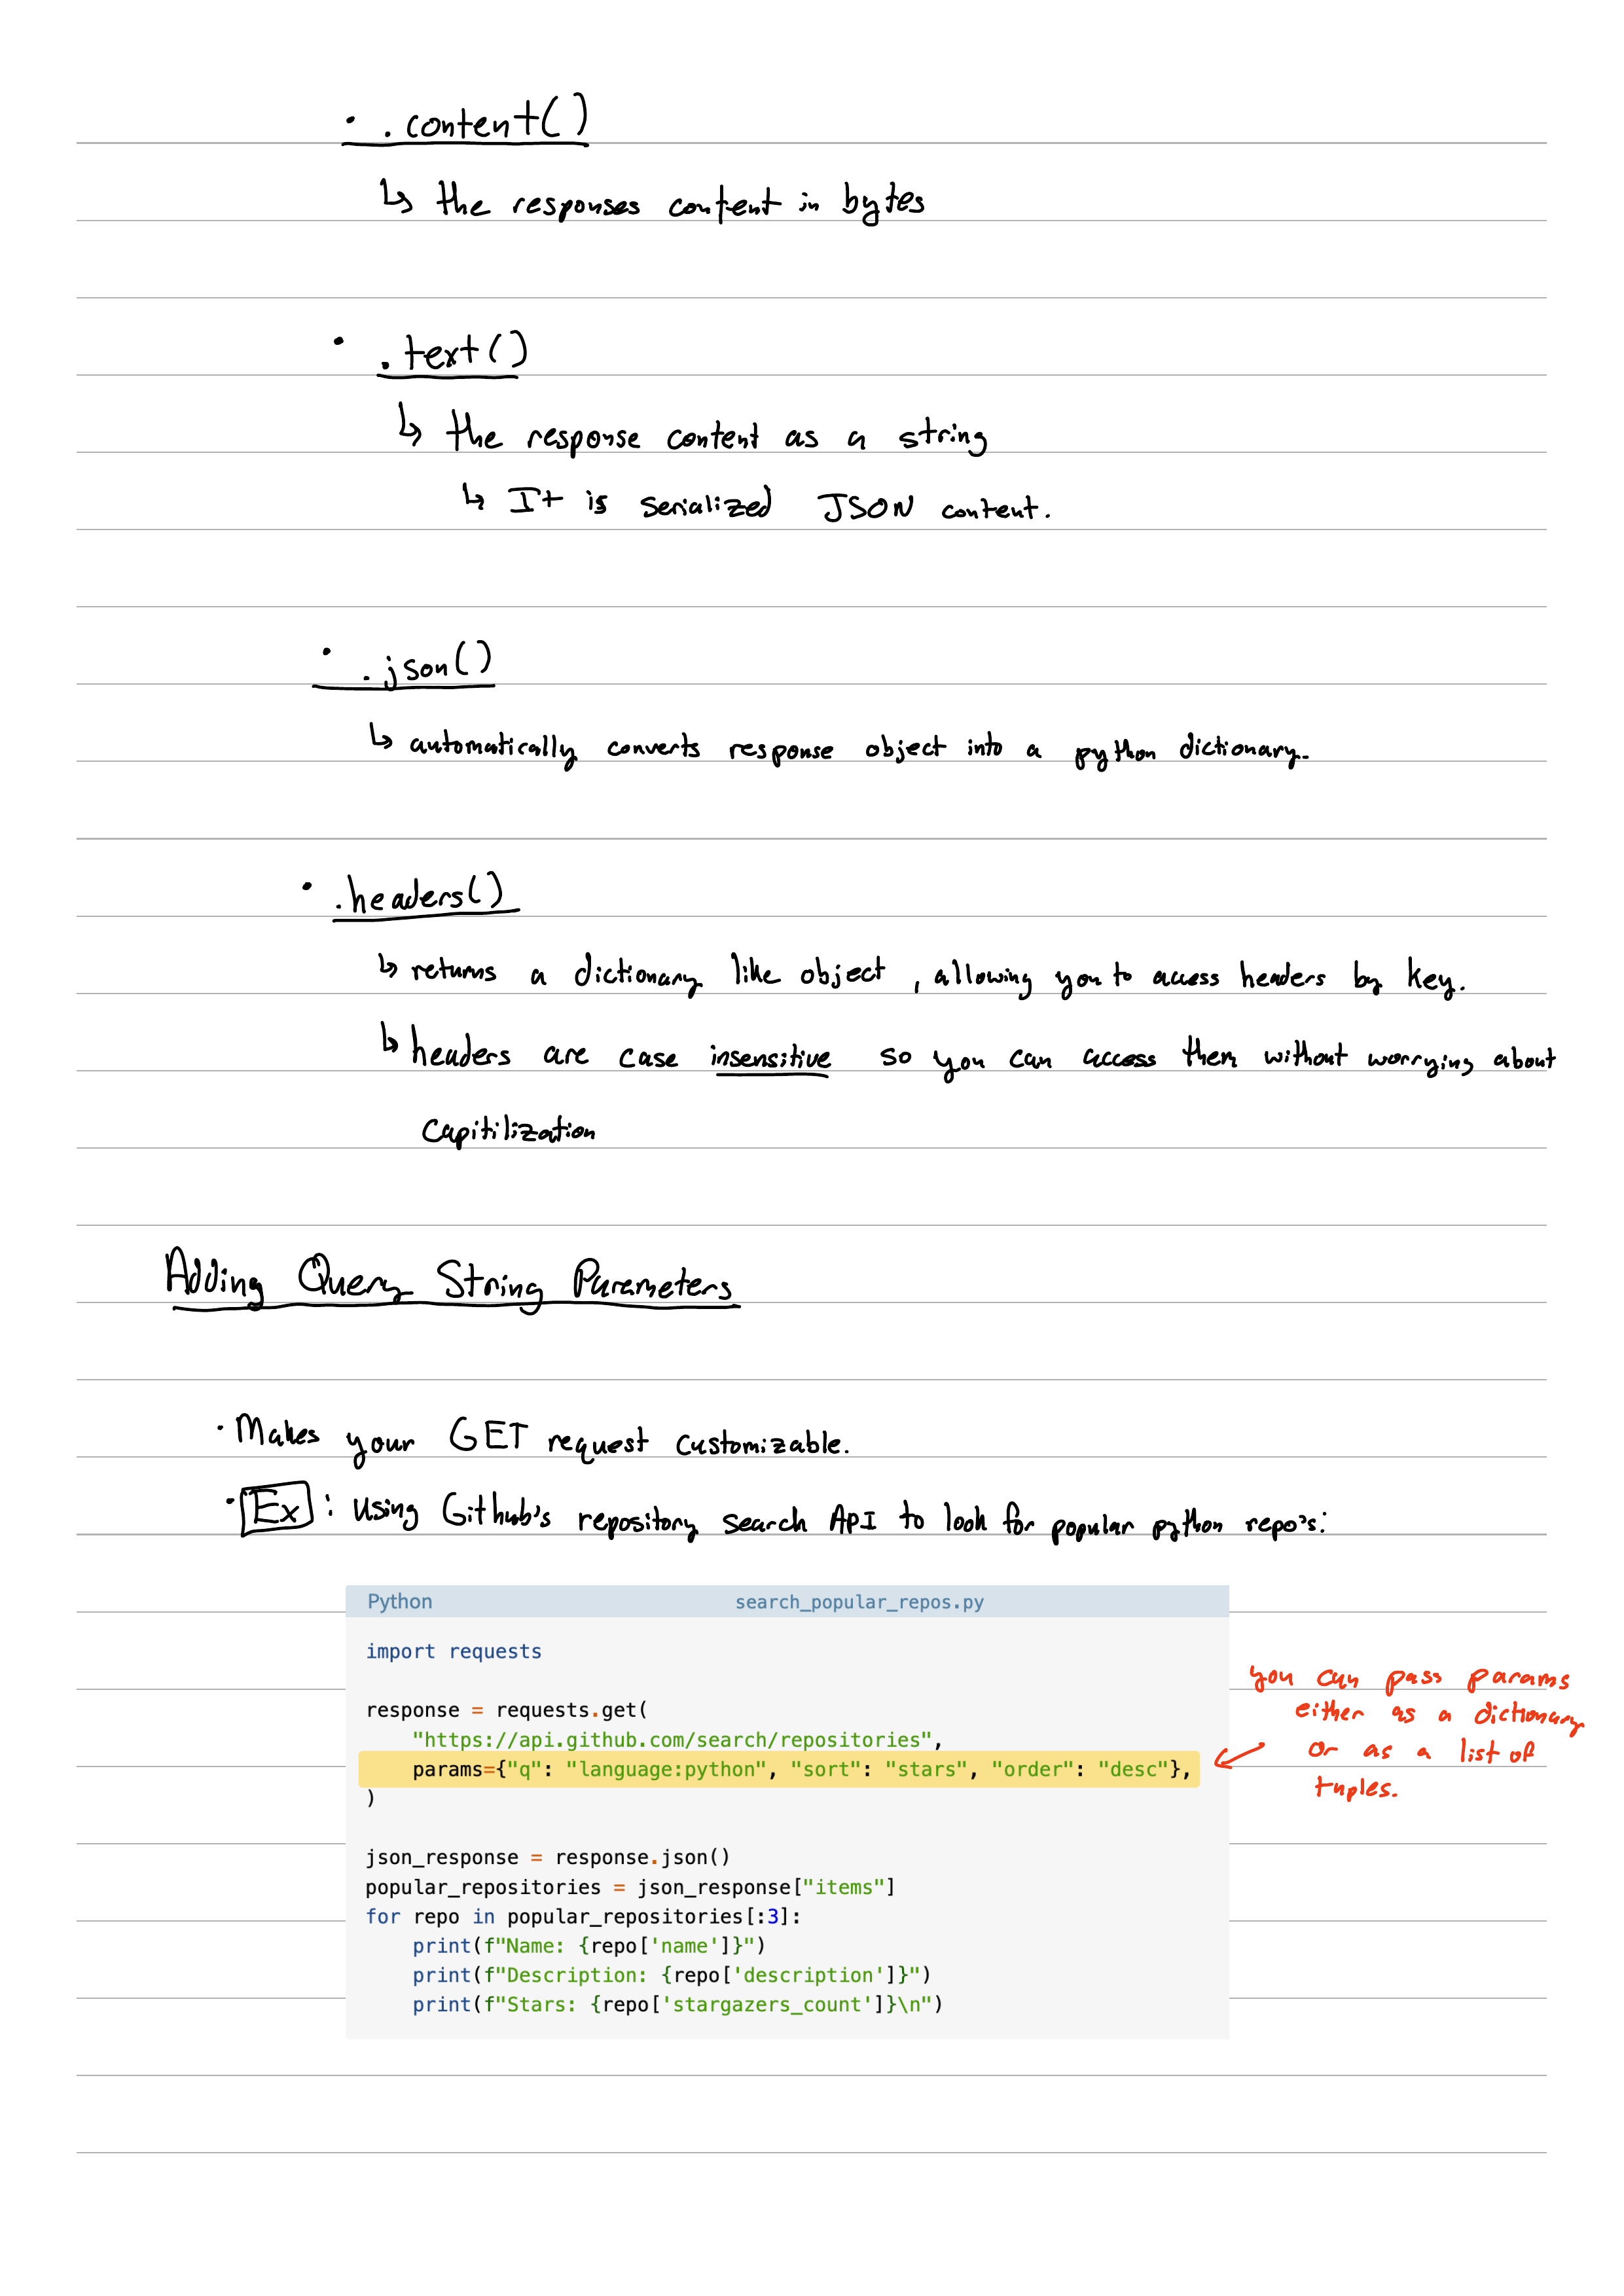 • .content()
↳ the responses content in bytes
• .text()
↳ the response content as a string
↳ It is serialized JSON content.
• .json()
↳ automatically converts response object into a python dictionary.
• .headers()
↳ returns a dictionary like object, allowing you to access headers by key.
↳ headers are case insensitive so you can access them without worrying about
capitilization
Adding Query String Parameters
• Makes your GET request customizable.
• Ex: using Github's repository search API to look for popular python repo's:
Python search_popular_repos.py
import requests
response = requests.get(
    "https://api.github.com/search/repositories",
    params={"q": "language:python", "sort": "stars", "order": "desc"},
)
you can pass params
either as a dictionary
or as a list of
tuples.
json_response = response.json()
popular_repositories = json_response["items"]
for repo in popular_repositories[:3]:
    print(f"Name: {repo['name']}")
    print(f"Description: {repo['description']}")
    print(f"Stars: {repo['stargazers_count']}\n")